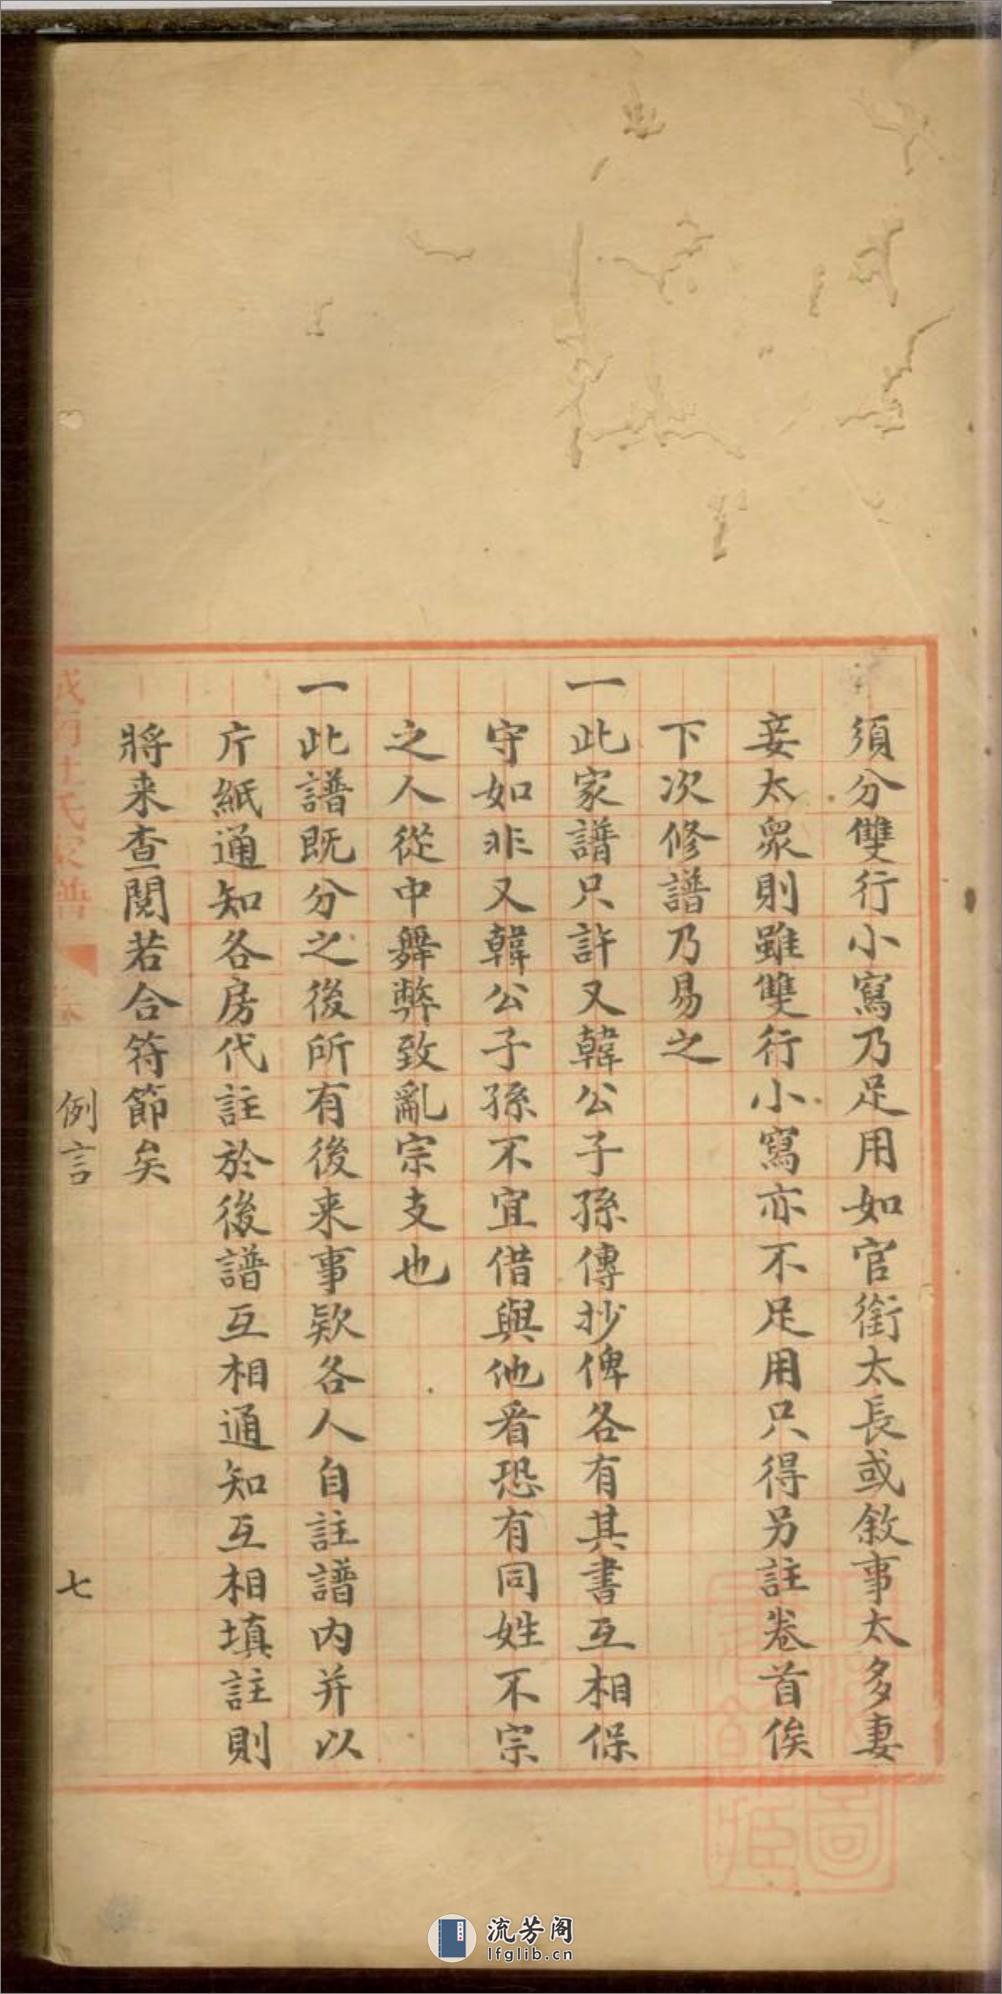 須分雙行小寫乃足用如官銜太長或敘事太多妻
妾太眾則雖雙行小寫亦不足用只得另註卷首俟
下次修譜乃易之
一此家譜只許又韓公子孫傳抄俾各有其書互相保
守如非又韓公子孫不宜借與他看恐有同姓不宗
之人從中舞弊致亂宗支也
一此譜既分之後所有後来事欵各人自註譜内并以
片紙通知各房代註於後譜互相通知互相填註則
將来查閱若合符節矣
氏家譜
例言
七
流芳阁
lfglib.cn